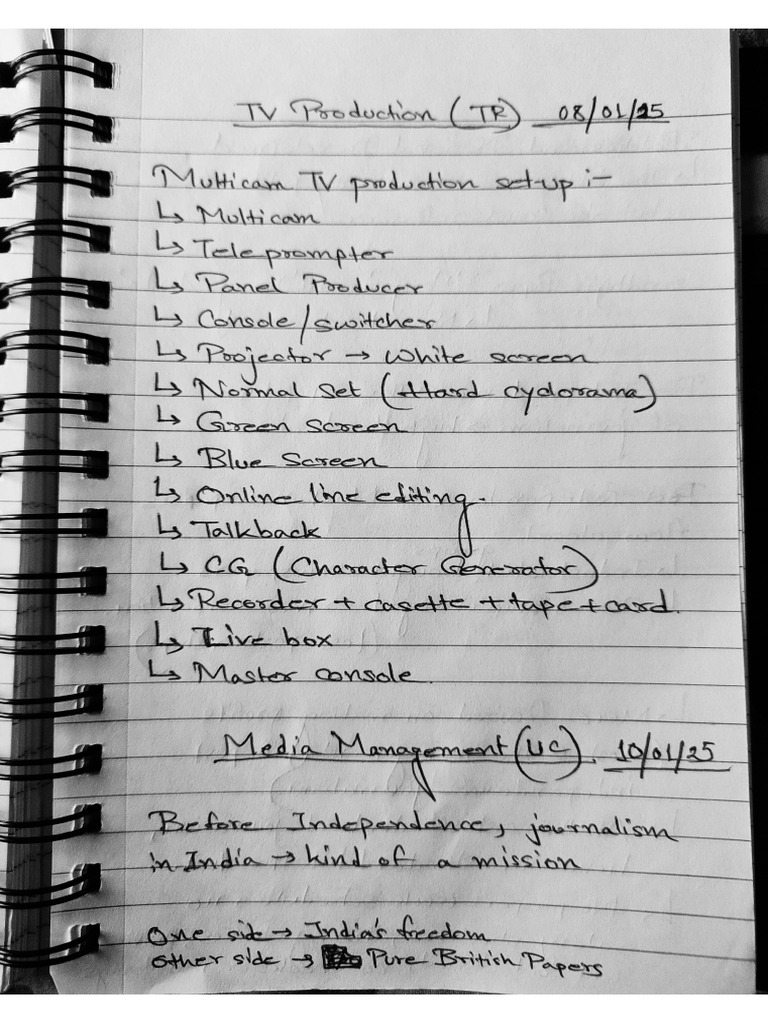 TV Production (TR) 08/01/25
Multicam TV production set-up :-
↳ Multicam
↳ Teleprompter
↳ Panel Producer
↳ Console/switcher
↳ Projector → White screen
↳ Normal Set (Hard cyclorama)
↳ Green screen
↳ Blue Screen
↳ Online line editing.
↳ Talkback
↳ CG (Character Generator)
↳ Recorder + casette + tape + card.
↳ Live box
↳ Master console.
Media Management (UC). 10/01/25
Before Independence, journalism
in India → kind of a mission
One side → India's freedom
other side → Pure British Papers